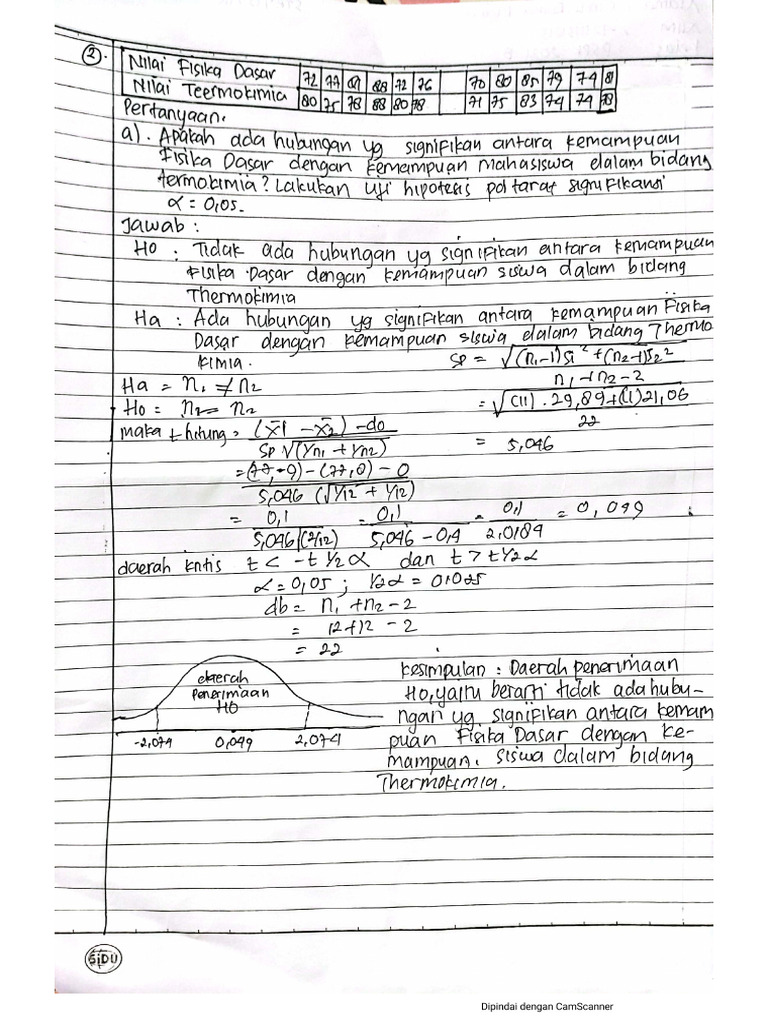 ②. Nilai Fisika Dasar 72 77 87 88 72 76 70 80 85 79 74 81
Nilai Teermokimia 80 75 78 88 80 78 71 75 83 74 74 78
Pertanyaan.
a). Apakah ada hubungan yg signifikan antara kemampuan
Fisika Dasar dengan kemampuan mahasiswa dalam bidang
termokimia? Lakukan uji hipotesis pd taraf signifikansi
α = 0,05.
Jawab :
H0 : Tidak ada hubungan yg signifikan antara kemampuan
Fisika Dasar dengan kemampuan siswa dalam bidang
Thermokimia
Ha : Ada hubungan yg signifikan antara kemampuan Fisika
Dasar dengan kemampuan siswa dalam bidang Thermo
kimia.
Sp = √(n₁-1)S₁² + (n₂-1)S₂²
n₁ + n₂ - 2
= √(11) . 29,89 + (11) 21,06
22
= 5,046
Ha = n₁ ≠ n₂
Ho = n₂ = n₂
maka t hitung = (x̄1 - x̄2) - do
Sp √(1/n₁ + 1/n₂)
= (77,9) - (77,8) - 0
5,046 (√1/12 + 1/12)
= 0,1 = 0,1 = 0,1 = 0,099
5,046 √(2/12) 5,046 - 0,4 2,0184
daerah kritis t < -t 1/2 α dan t > t 1/2 α
α = 0,05 ; 1/2 α = 0,025
db = n₁ + n₂ - 2
= 12 + 12 - 2
= 22
daerah
penerimaan
H0
-2,074 0,099 2,074
Kesimpulan : Daerah penerimaan
Ho, yaitu berarti tidak ada hubu-
ngan yg signifikan antara kemam
puan Fisika Dasar dengan ke-
mampuan. siswa dalam bidang
Thermokimia.
SiDU
Dipindai dengan CamScanner